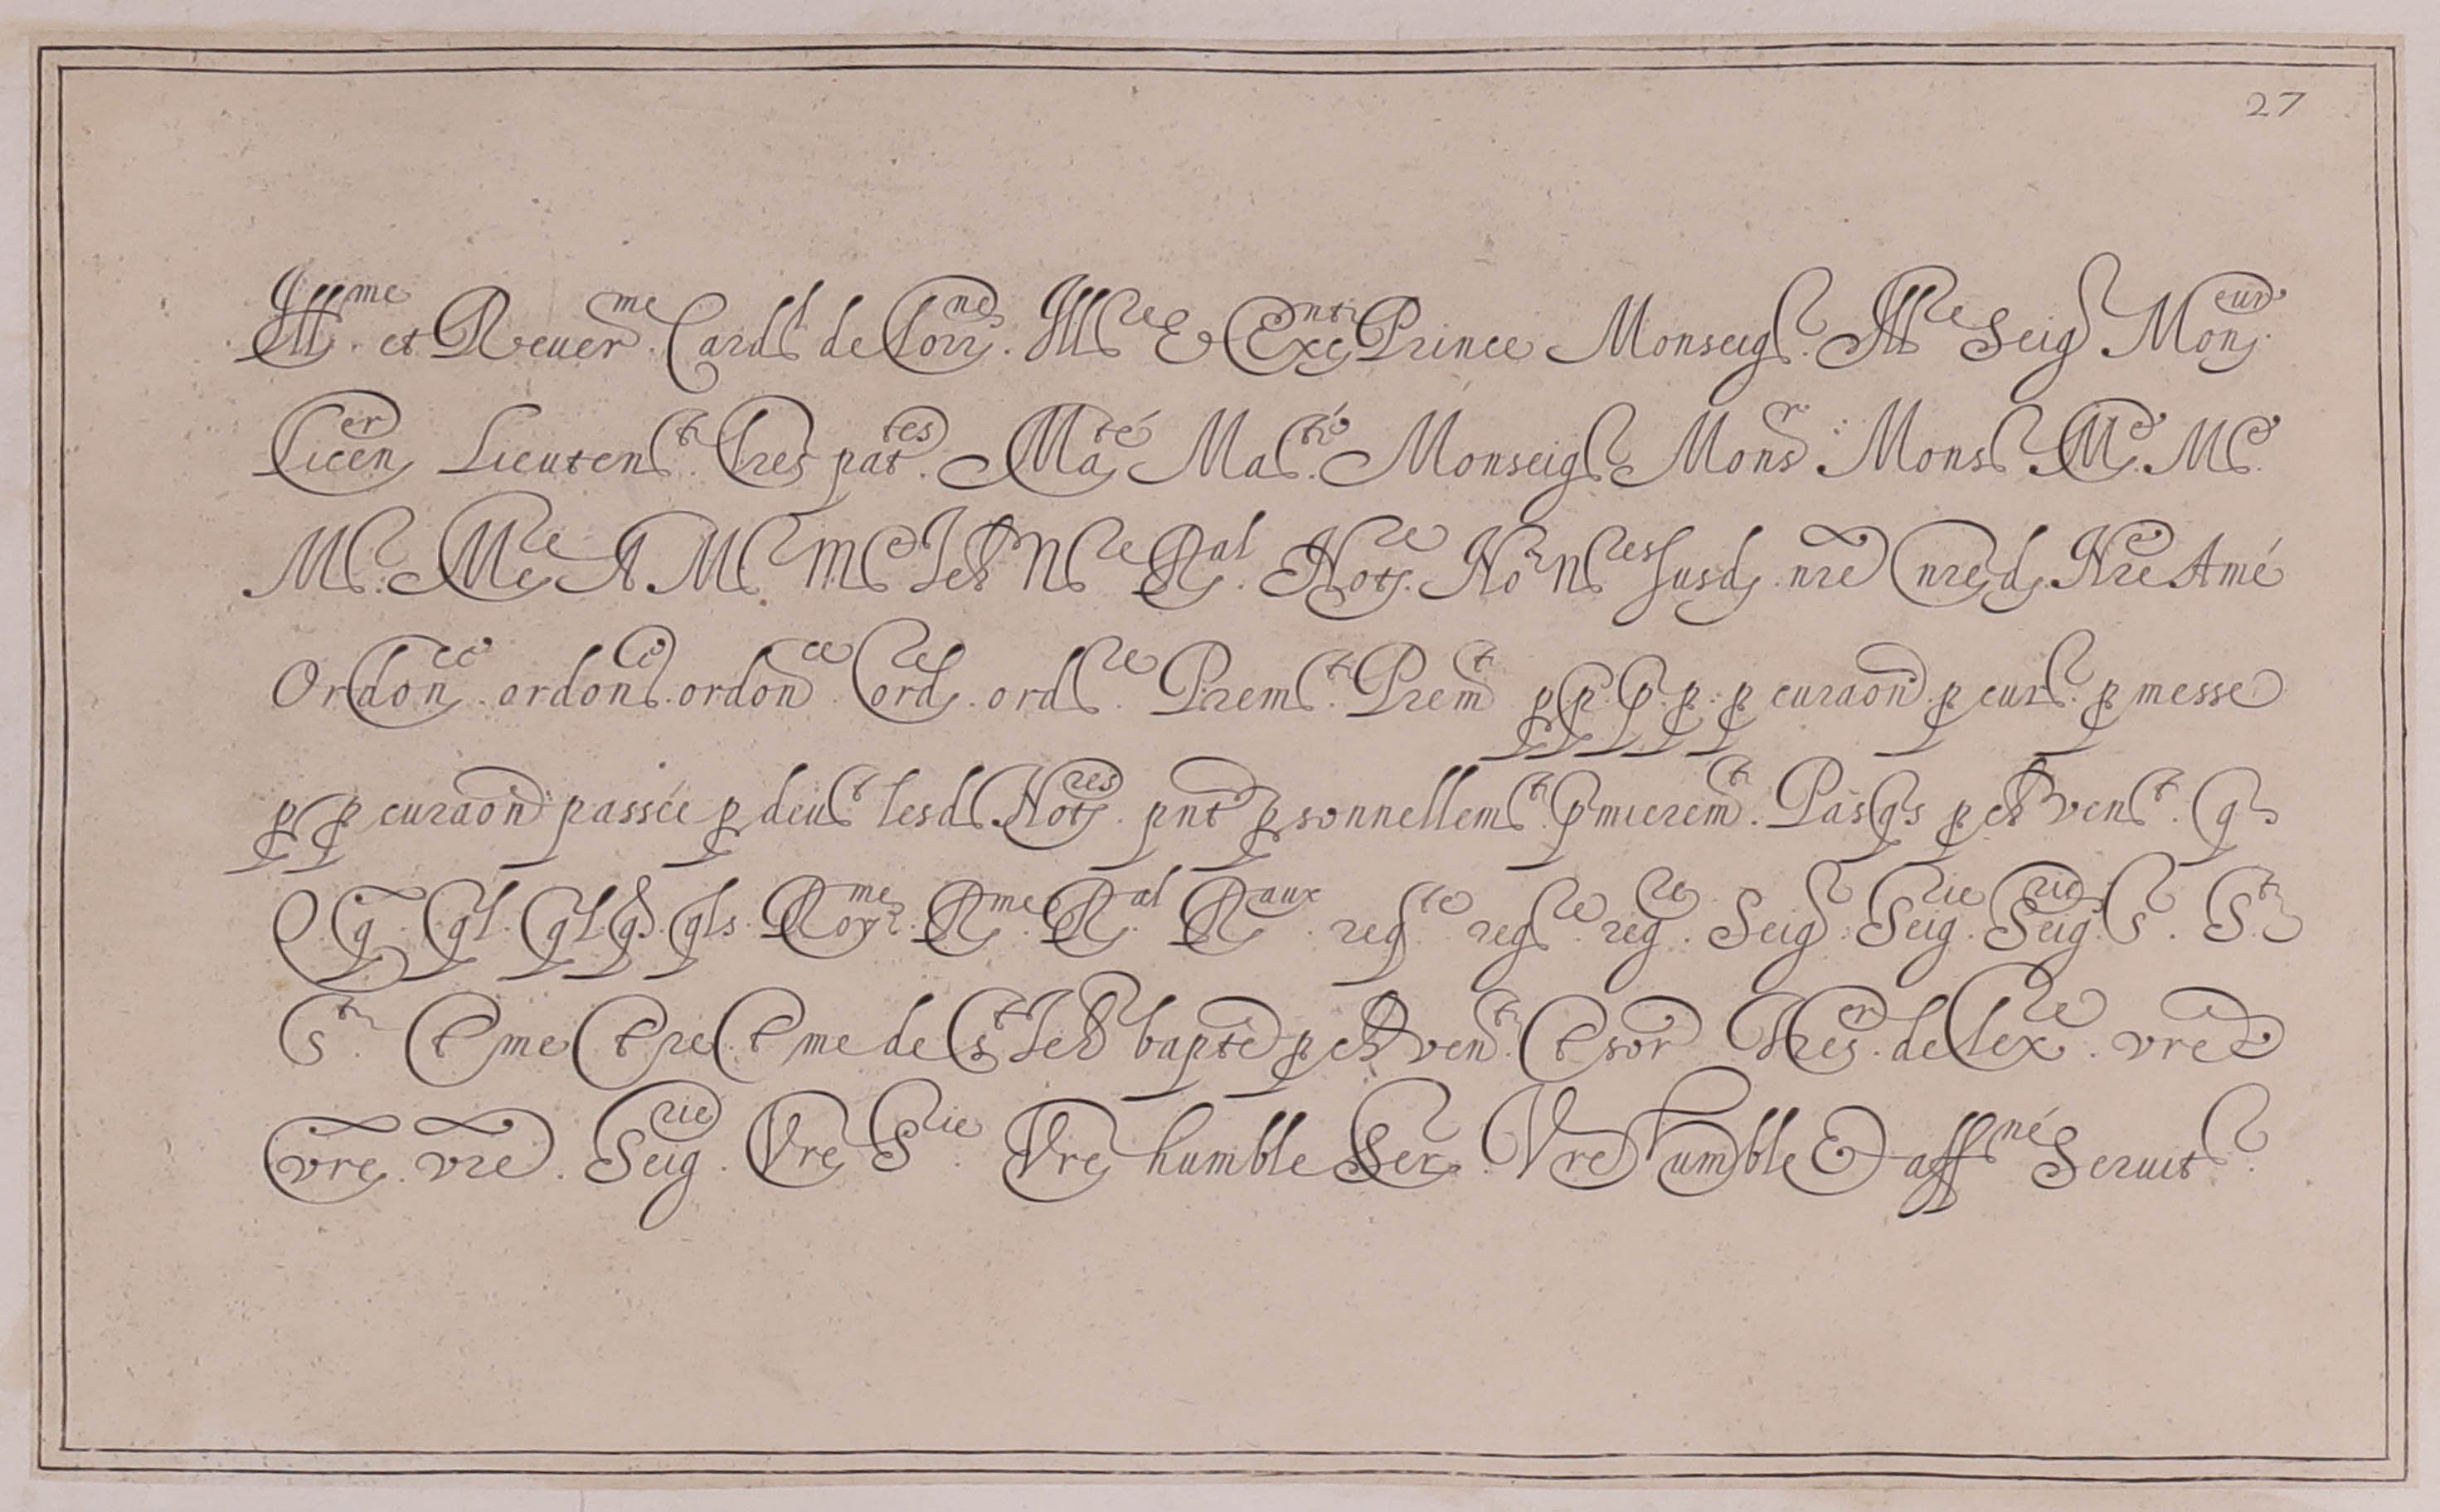 27
Illme. et Reuerme. Cardl de Lorr.ne Illre & Excnt Prince Monseigr. Illre Seigr Monseur.
Licener Lieutent. Lres pattes. Maté Maté. Monseigr Monsr. Monsr Me. Me.
Mr. Mre A Mr Me Jeh Nre Ral. Notre. Nor Nres susd. nre nred. Nre Amé
Ordonce. ordonce. ordonce ordre. ordre. Premt. Premt p p p. p. p curaon. p curr. p messe
p p curaon passée p deut lesd Notres. pnt psonnellemt. pmieremt. Pasqs p ch vent. q
Q. q. ql. ql. q. qls. Royme. Rme. Ral. Raux. regte regre. regre. Seigr. Seigrie. Seigrie. Sr. St.
St. tme tre. tme de St Jeh bapte p ch vent. tsor Tres.er de lexre. vre
vre. vre. Seigrie. Vre Srie. Vre humble Ser. Vre humble & affné Seruitr.